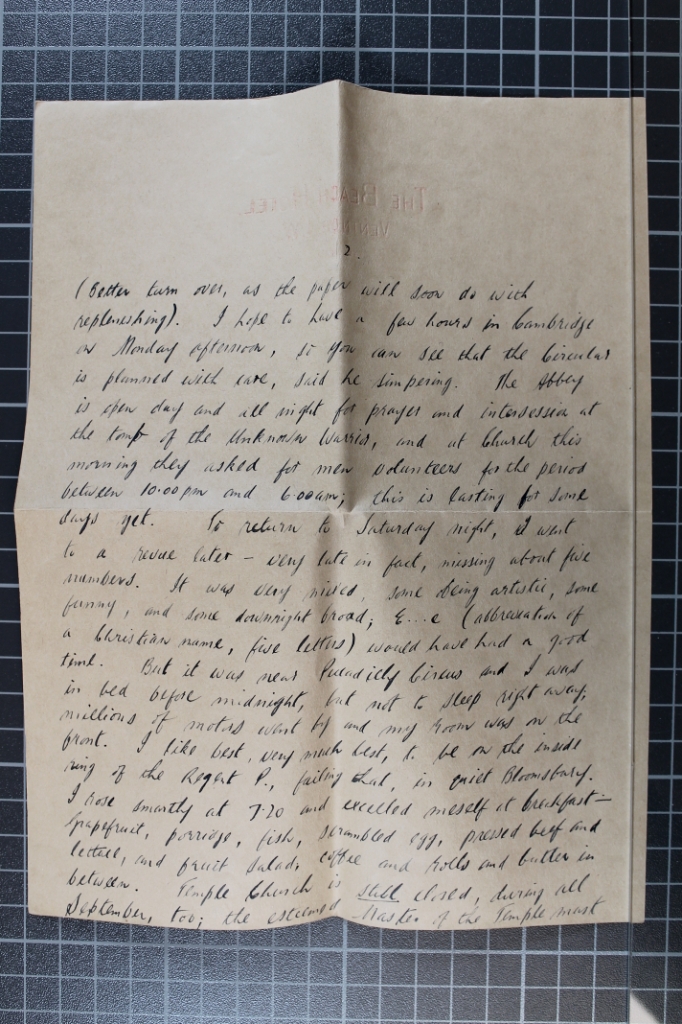 THE BEACH HOTEL
2.
(Better turn over, as the paper will soon do with
replenishing). I hope to have a few hours in Cambridge
on Monday afternoon, so you can see that the Circular
is planned with care, said he simpering. The Abbey
is open day and all night for prayer and intersession at
the tomb of the Unknown Warrior, and at Church this
morning they asked for men volunteers for the period
between 10.00pm and 6.00am; this is lasting for some
days yet. To return to Saturday night, I went
to a revue later – very late in fact, missing about five
numbers. It was very mixed, some being artistic, some
funny, and some downright broad; E...e (abbreviation of
a Christian name, five letters) would have had a good
time. But it was near Piccadilly Circus and I was
in bed before midnight, but not to sleep right away;
millions of motors went by and my room was on the
front. I like best, very much best, to be on the inside
ring of the Regent P., failing that, in quiet Bloomsbury.
I rose smartly at 7.20 and excelled meself at breakfast –
Grapefruit, porridge, fish, scrambled egg, pressed beef and
lettuce, and fruit salad, coffee and rolls and butter in
between. Temple Church is still closed, during all
September, too; the esteemed Master of the Temple must